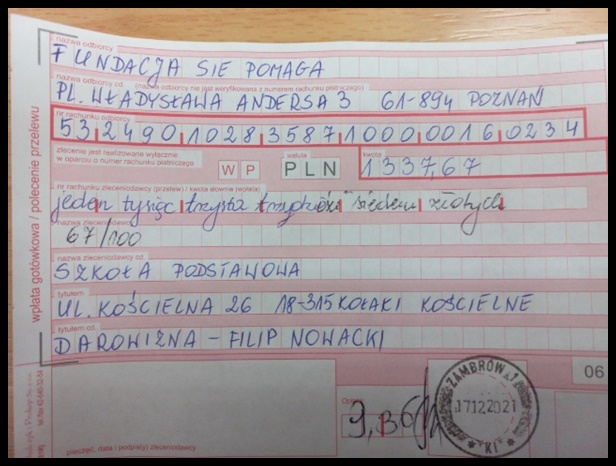 nazwa odbiorcy
FUNDACJA SIE POMAGA
nazwa odbiorcy cd. (nazwa odbiorcy nie jest weryfikowana z numerem rachunku płatniczego)
PL. WŁADYSŁAWA ANDERSA 3 61-894 POZNAŃ
nr rachunku odbiorcy
53 2490 1028 3587 1000 0016 0234
zlecenie jest realizowane wyłącznie
w oparciu o numer rachunku płatniczego
W P
waluta
PLN
kwota
1337,67
nr rachunku zleceniodawcy (przelew) / kwota słownie (wpłata)
jeden tysiąc trzysta trzydzieści siedem złotych
nazwa zleceniodawcy
67/100
nazwa zleceniodawcy cd.
SZKOŁA PODSTAWOWA
tytułem
UL. KOŚCIELNA 26 18-315 KOŁAKI KOŚCIELNE
tytułem cd.
DAROWIZNA - FILIP NOWACKI
wpłata gotówkowa / polecenie przelewu
06
Opłata
ZAMBRÓW 1
17.12.2021
pieczęć, data i podpis(y) zleceniodawcy